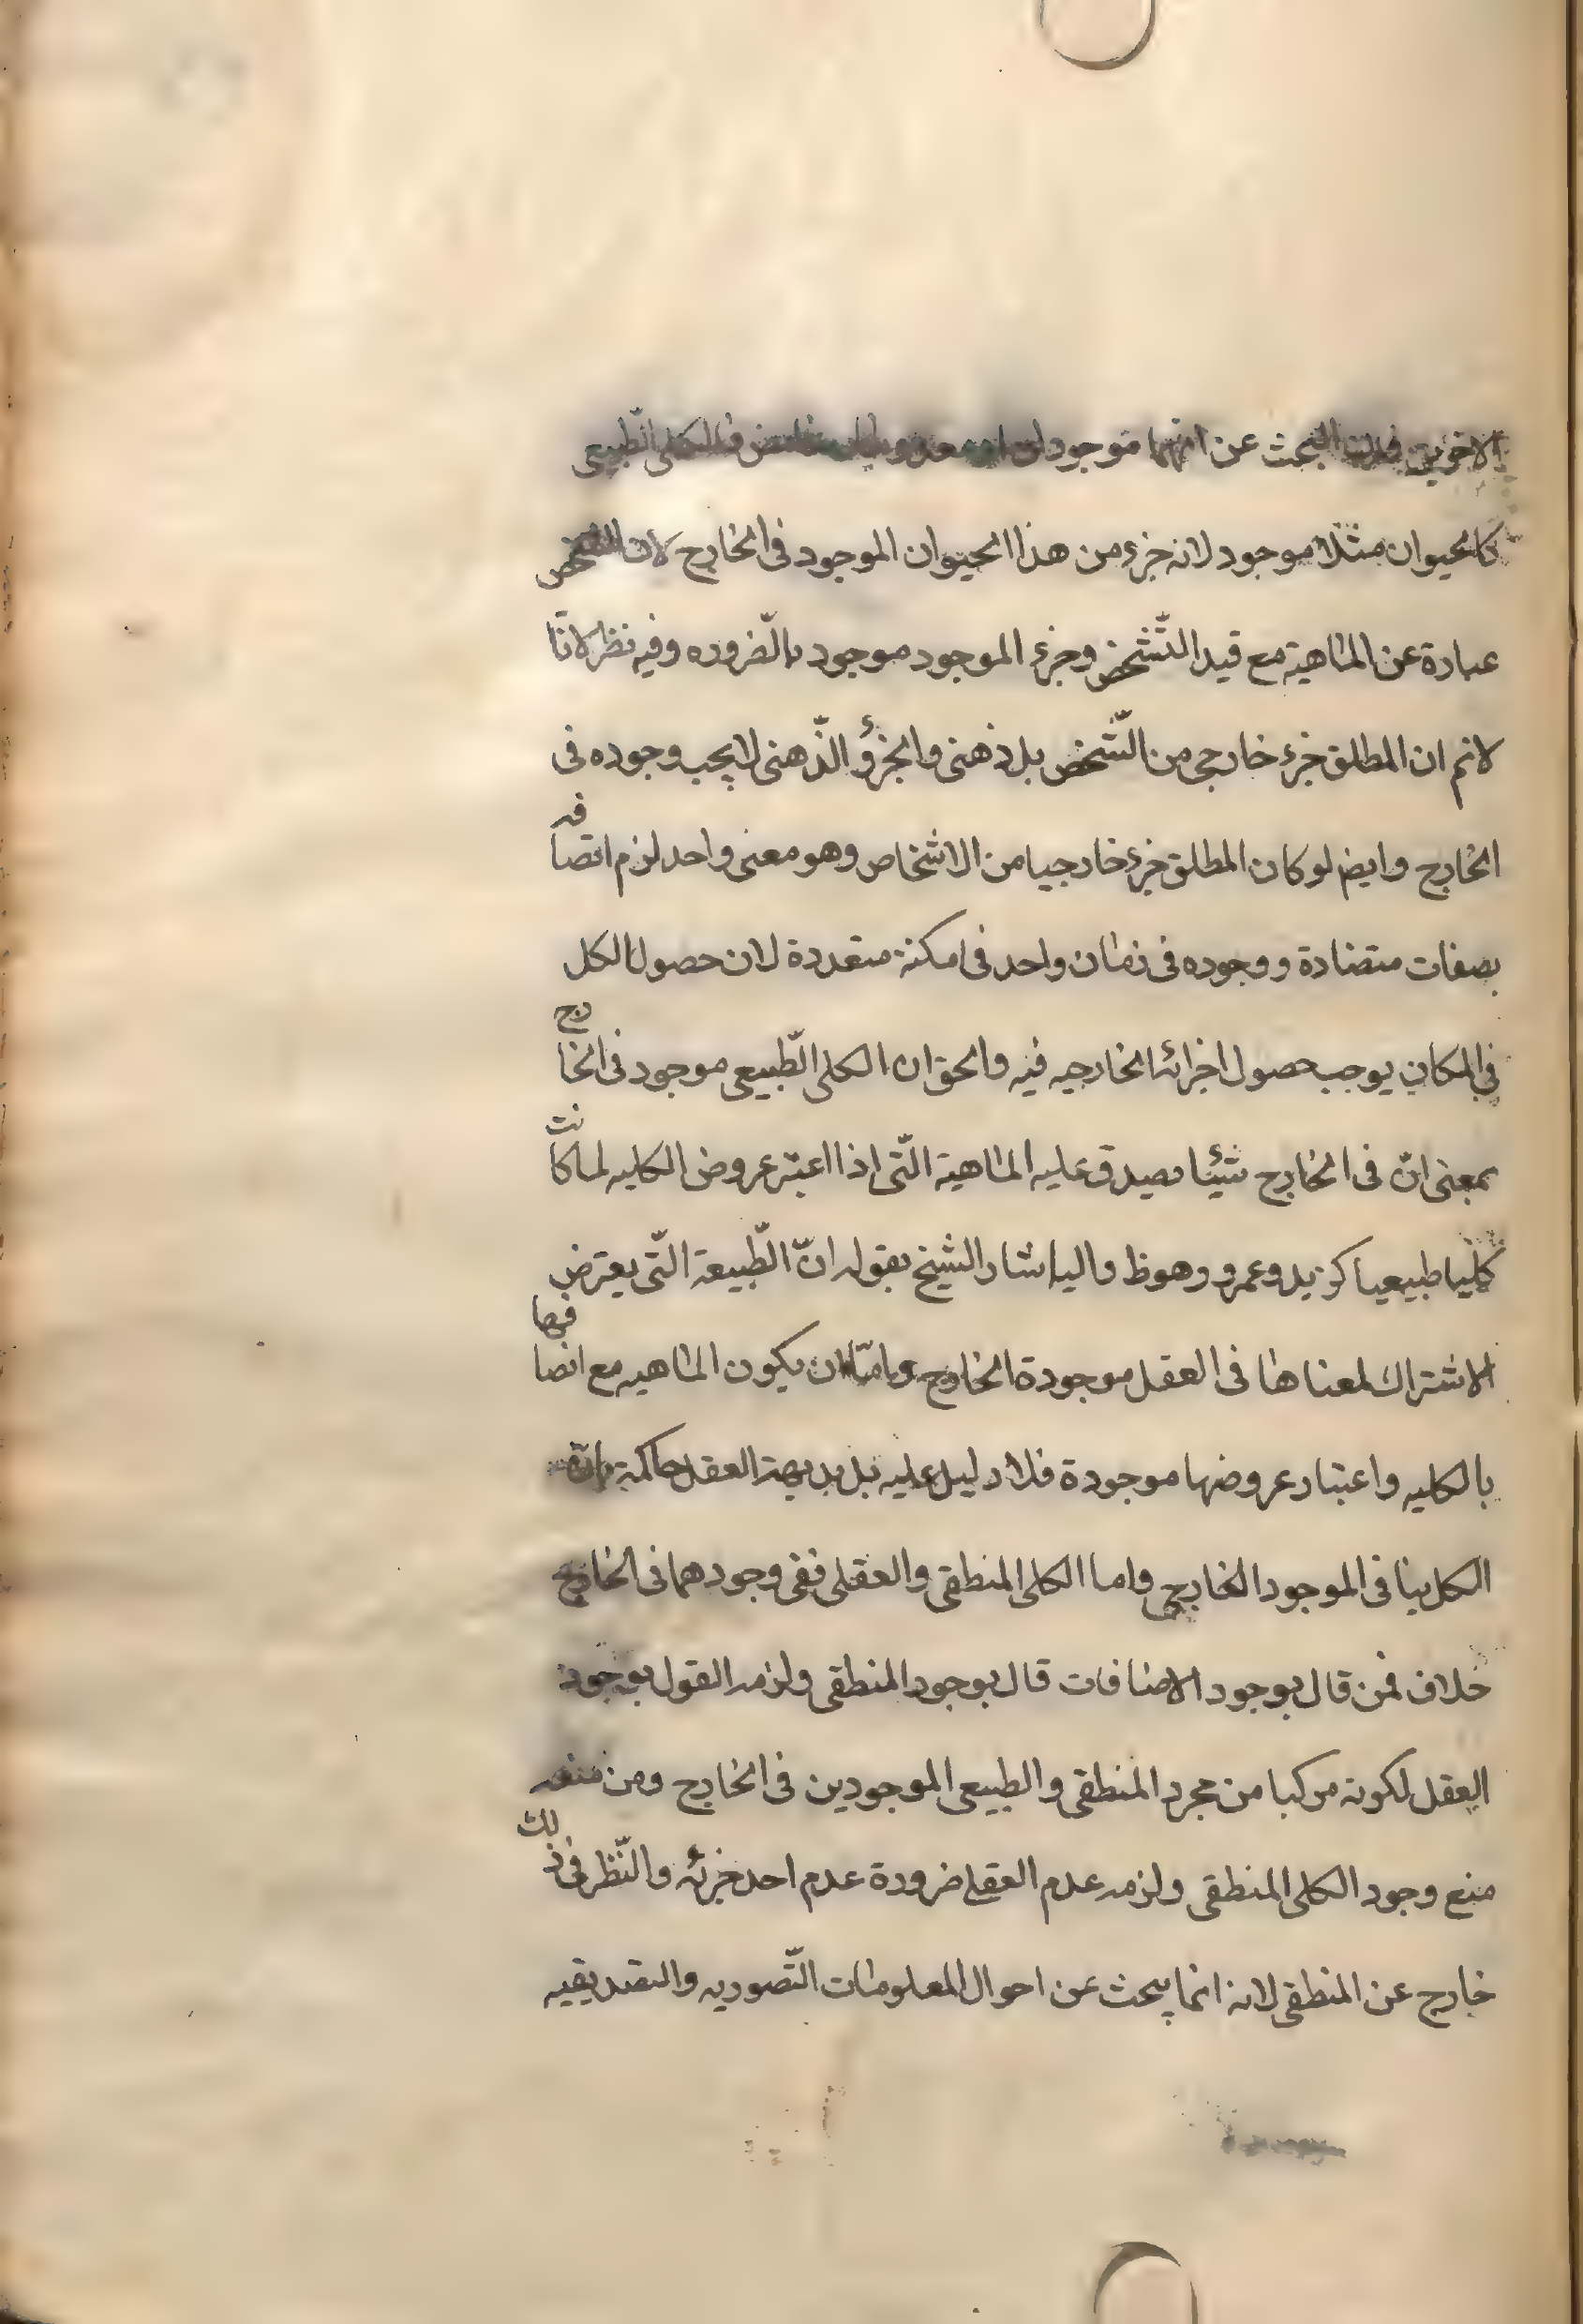 الاخريين البحث عن انهما موجود الطبيعى
كالحيوان مثلا موجود لانه جزء من هذا الحيوان الموجود فى الخارج لان الشخص
عبارة عن الماهية مع قيد التّشخص وجزء الموجود موجود بالضّروره وفيه نظر لانّا
لانم ان المطلق جزء خارجى من الشّخص بل ذهنى والجزؤ الذّهنى لا يجب وجوده فى
الخارج وايضا لو كان المطلق جزء خارجيا من الاشخاص وهو معنى واحد لزم اتصافه
بصفات متضادة ووجوده فى زمان واحد فى امكنة متعددة لان حصول الكل
فى المكان يوجب حصول اجزائه الخارجيه فيه والحق ان الكلى الطّبيعى موجود فى الخارج
بمعنى انّ فى الخارج شيئا يصدق عليه الماهية الّتى اذا اعتبر عروض الكليه لها كانت
كليّا طبيعيا كزيد وعمرو وهو ظ واليه اشار الشيخ بقوله انّ الطّبيعة الّتى يعترض
الاشتراك لمعناها فى العقل موجودة الخارج وامّا ان يكون الماهيه مع اتصافها
بالكليه واعتبار عروضها موجودة فلا دليل عليه بل بديهة العقل حاكمة بانّ
الكل ينافى الموجود الخارجى واما الكلى المنطقى والعقلى ففى وجودهما فى الخارج
خلاف فمن قال بوجود الاضافات قال بوجود المنطقى ولزمه القول بوجود
العقل لكونه مركبا من مجرد المنطقى والطبيعى الموجودين فى الخارج ومن منعه
منع وجود الكلى المنطقى ولزمه عدم العقلى ضرورة عدم احد جزئه والنّظر فى ذلك
خارج عن المنطقى لانه انما يبحث عن احوال المعلومات التّصوريه والتصديقيه